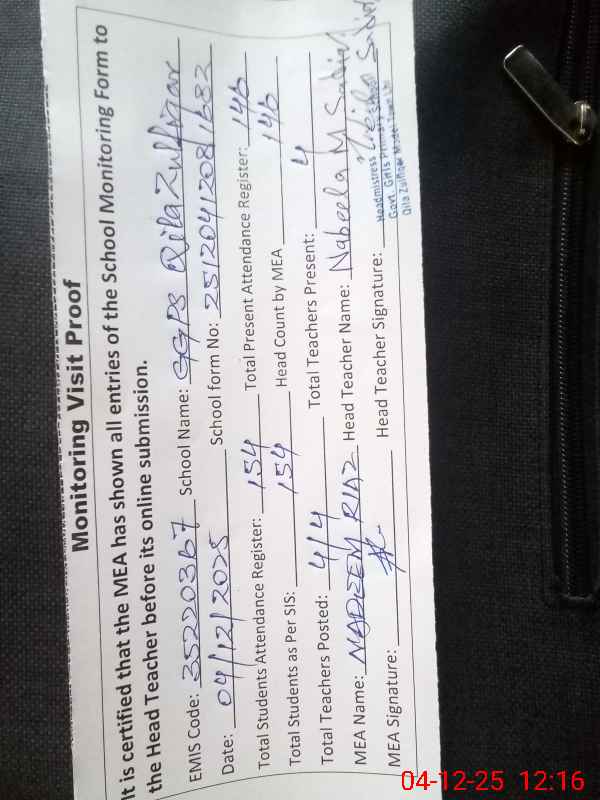 Monitoring Visit Proof
It is certified that the MEA has shown all entries of the School Monitoring Form to
the Head Teacher before its online submission.
EMIS Code: 35220367 School Name: GGPS Qila Zulfiqar
Date: 04/12/2025 School form No: 2512041208 1683
Total Students Attendance Register: 154 Total Present Attendance Register: 146
Total Students as Per SIS: 154 Head Count by MEA 146
Total Teachers Posted: 4/4 Total Teachers Present: 4
MEA Name: NADEEM RIAZ Head Teacher Name: Nabeela M Sabir
MEA Signature: Head Teacher Signature:
Headmistress
Govt. Girls Primary School
Qila Zulfiqar Model Town Lhr
04-12-25 12:16